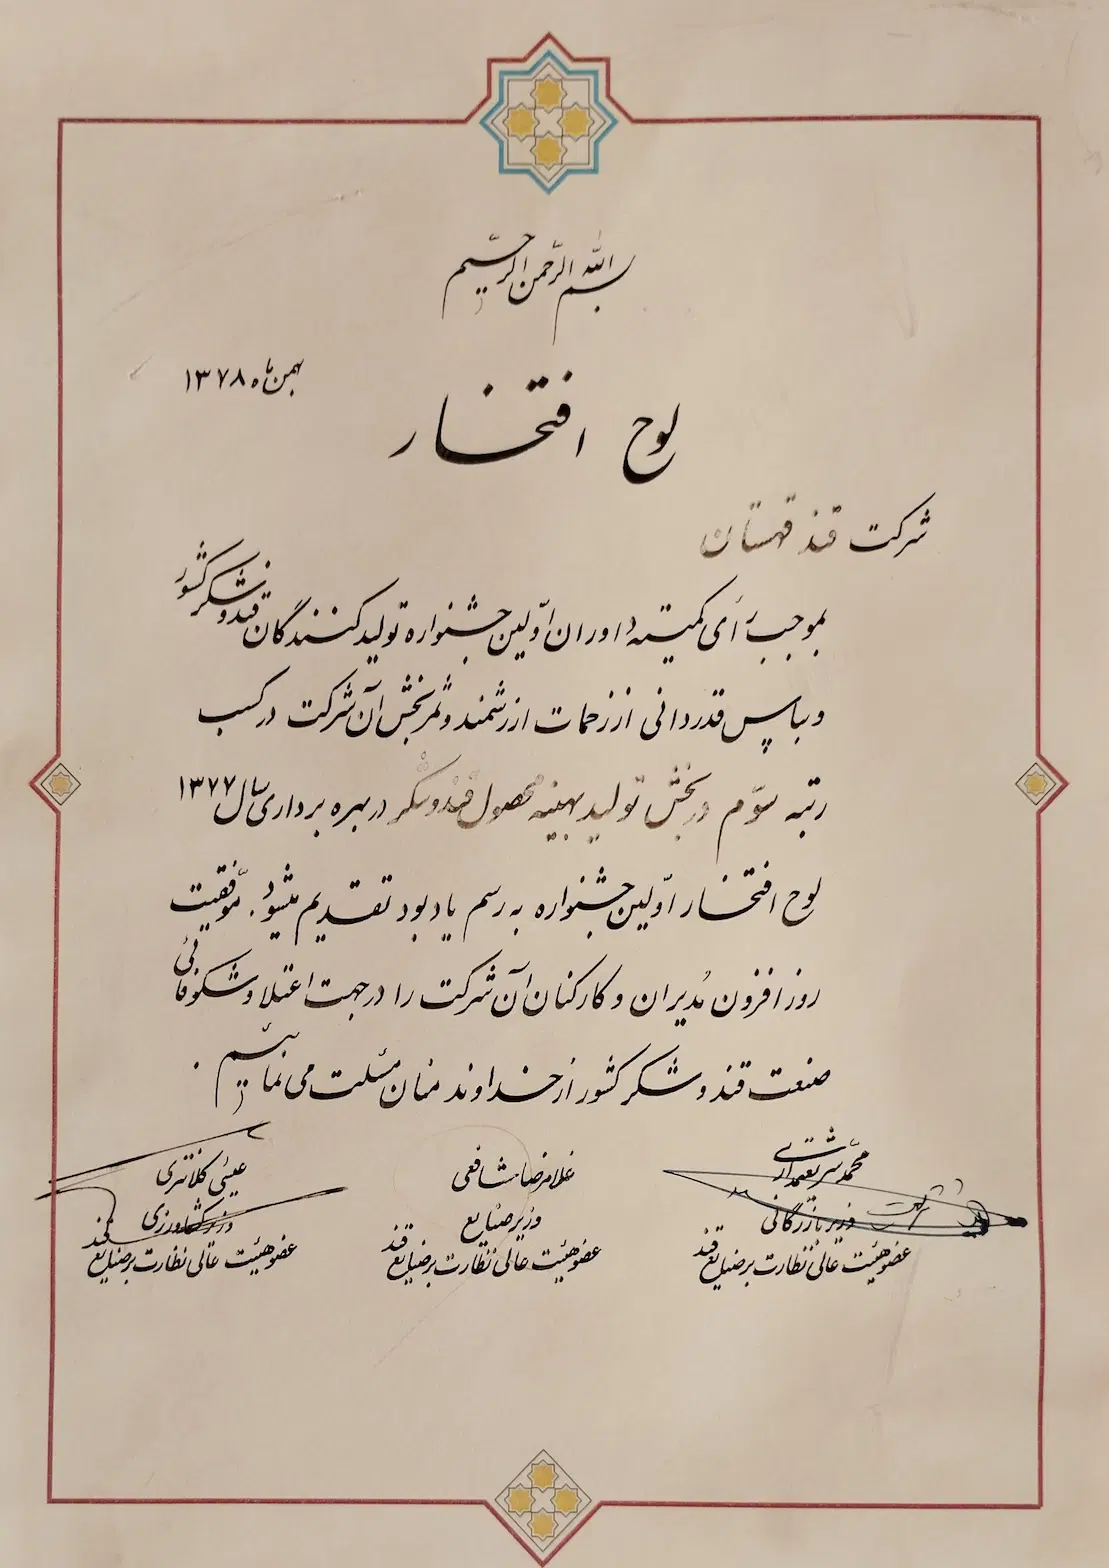 بسم الله الرّحمن الرّحیم
بهمن ماه ۱۳۷۸
لوح افتخار
شرکت قند قهستان
بموجب رأی کمیته داوران اوّلین جشنواره تولید کنندگان قند و شکر کشور
و بپاس قدردانی از زحمات ارزشمند و ثمربخش آن شرکت در کسب
رتبه سوّم در بخش تولید بهینه محصول قند و شکر در بهره برداری سال ۱۳۷۷
لوح افتخار اوّلین جشنواره به رسم یادبود تقدیم میشود. موّفقیت
روز افزون مُدیران و کارکنان آن شرکت را در جهت اعتلا و شکوفائی
صنعت قند و شکر کشور از خداوند منان مسئلت می نمائیم.
محمّد شریعتمداری
وزیر بازرگانی
عضو هیئت عالی نظارت بر صنایع قند
غلامرضا شافعی
وزیر صنایع
عضو هیئت عالی نظارت بر صنایع قند
عیسی کلانتری
وزیر کشاورزی
عضو هیئت عالی نظارت بر صنایع قند